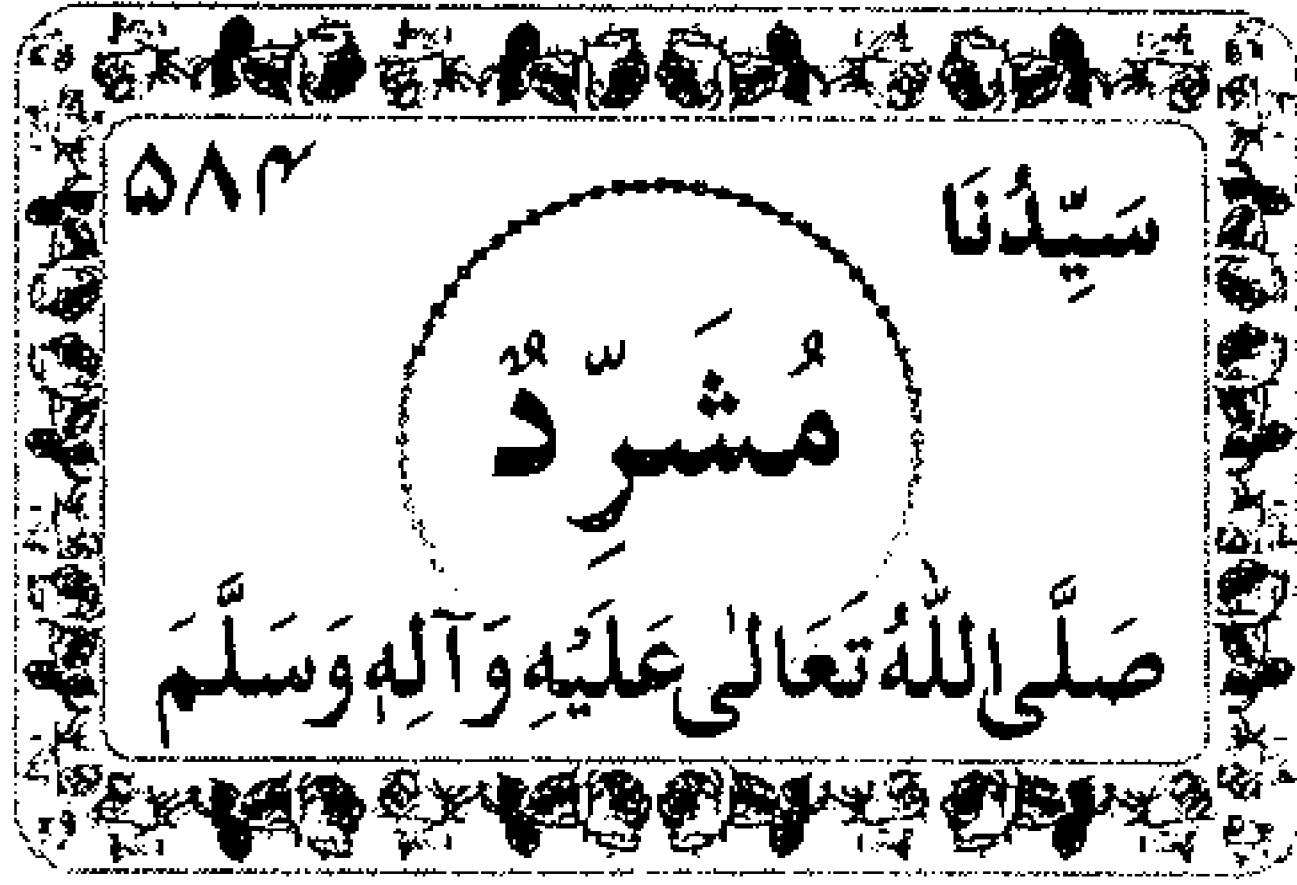 سَيِّدُنَا ۵۸۴
مُشَرِّدٌ
صَلَّى اللّٰهُ تَعَالٰى عَلَيْهِ وَآلِهٖ وَسَلَّمَ